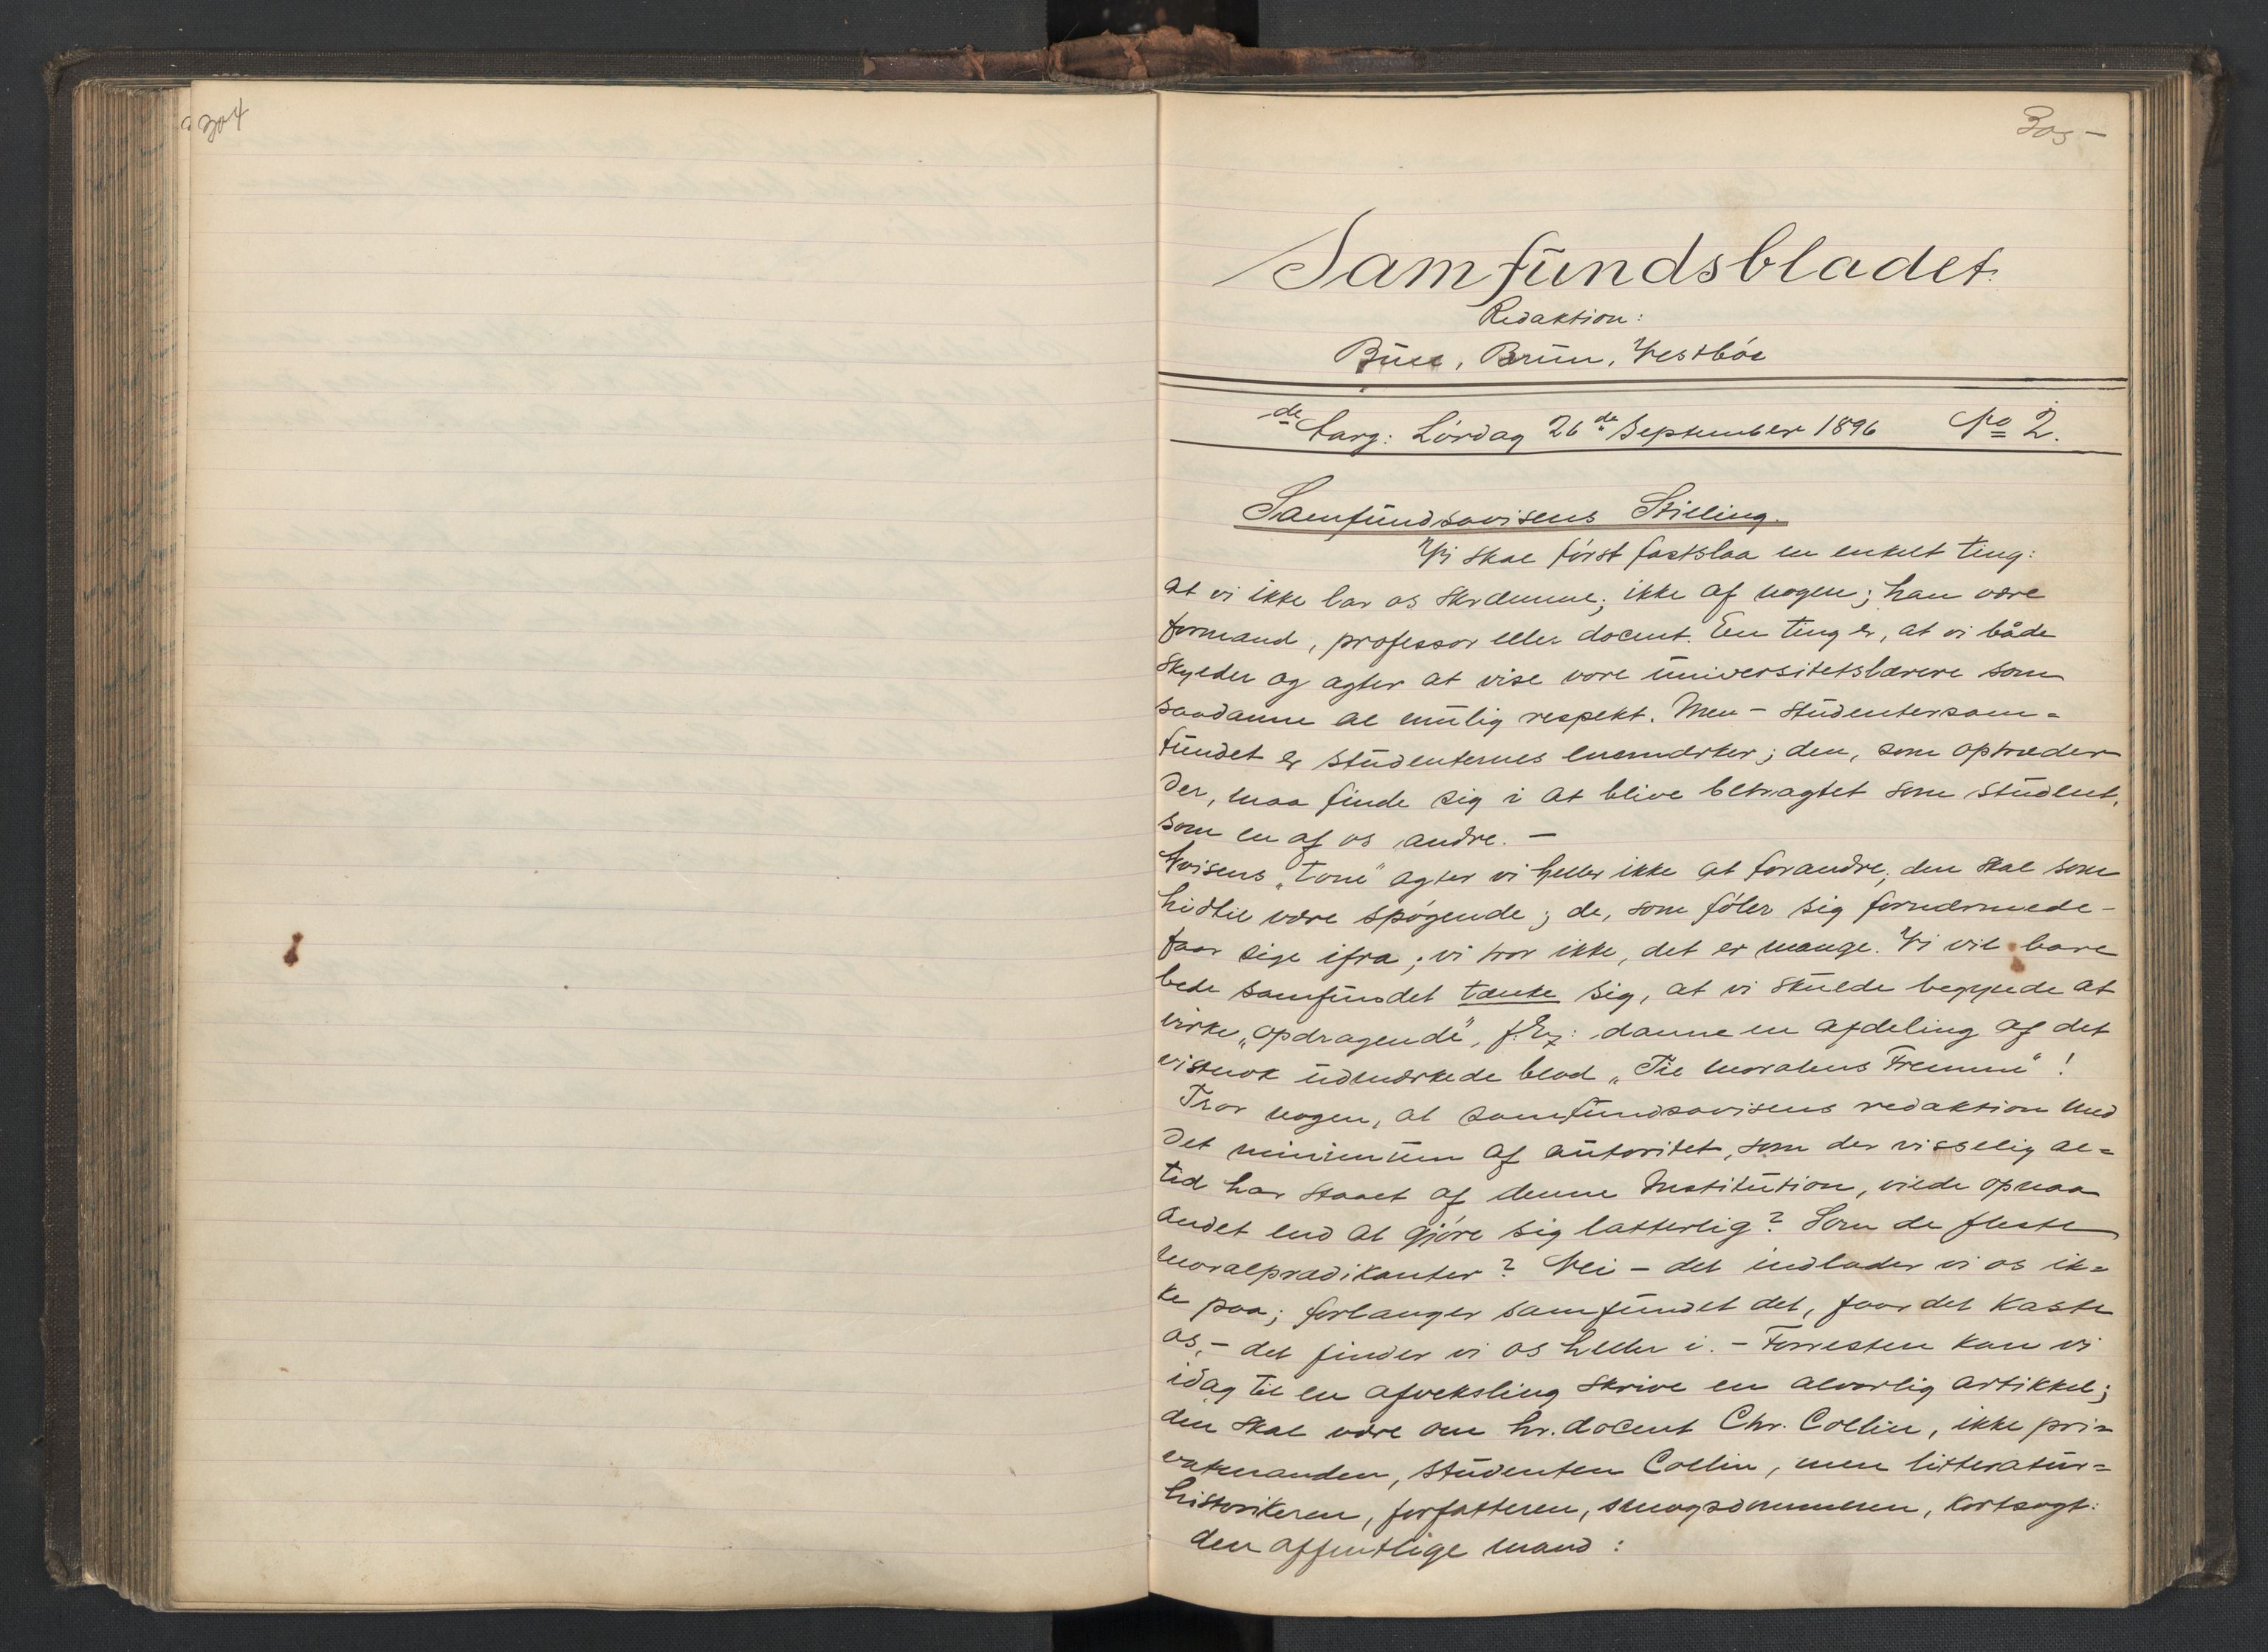 304
305 —
Samfundsbladet.
Redaktion:
Bull, Brun, Vestbøe
de Aarg: Lørdag 26de September 1896 No 2.
Samfundsavisens Stilling.
Vi skal først fastslaa en enkelt ting:
at vi ikke lar os skræmme; ikke af nogen; han være
formand, professor eller docent. En ting er, at vi både
skylder og agter at vise vore universitetslærere som
saadanne al mulig respekt. Men – studentersam=
fundet er studenternes enemærker; den, som optræder
der, maa finde sig i at blive betragtet som student,
som en af os andre. —
Avisens „tone" agter vi heller ikke at forandre; den skal som
hidtil være spøgende; de, som føler sig fornærmede –
faar sige ifra; vi tror ikke, det er mange. Vi vil bare
bede samfundet tænke sig, at vi skulde begynde at
virke „opdragende", f. Ex: danne en afdeling af det
vistnok udmærkede blad „Til Moralens Fremme"!
Tror nogen, at samfundsavisens redaktion med
det minimum af autoritet, som der visselig al=
tid har staaet af denne Institution, vilde opnaa
andet end at gjøre sig latterlig? Som de fleste
moralprædikanter? Nei – det indlader vi os ik=
ke paa; forlanger samfundet det, faar det kaste
os, – det finder vi os heller i. – Forresten kan vi
idag til en afveksling skrive en alvorlig artikkel;
den skal være om hr. docent Chr. Collin, ikke pri=
vatmanden, studenten Collin, men litteratur=
historikeren, forfatteren, smagsdommeren, kortsagt:
den offentlige mand: